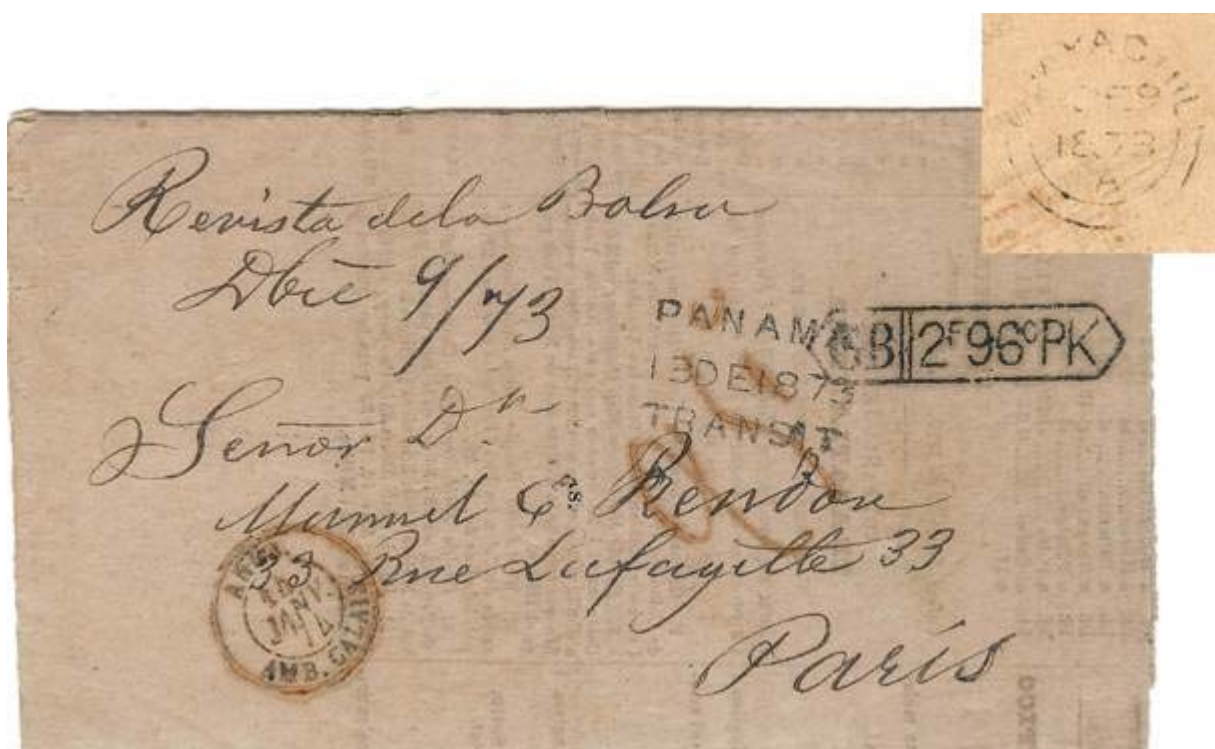 GUAYAQUIL
DE 9
1873
A
Revista dela Bolsa
Dbre 9/73
PANAMA
13 DE 1873
TRANSIT
GB 2F96cPK
Señor Dn
Manuel E. Rendon
33 Rue Lafayette 33
Paris
ANGL.
JANV.
74
AMB. CALAIS